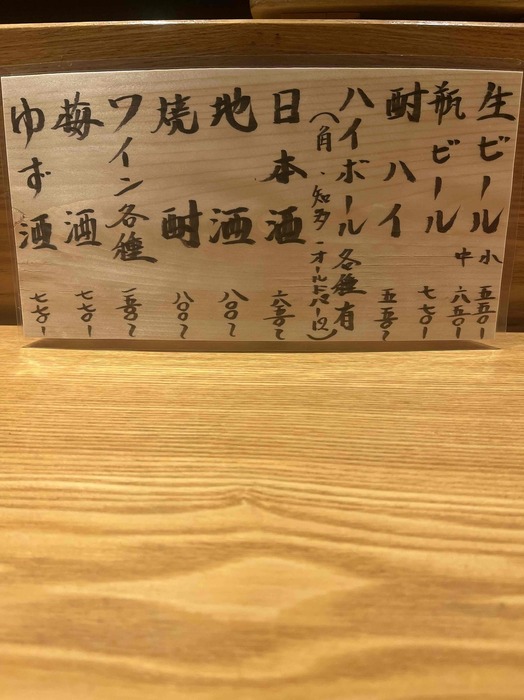 生ビール 小 五五〇ー
中 六五〇ー
瓶ビール 七七〇ー
酎ハイ 五五〇〜
ハイボール各種有
(角・知多・オールドパー12)
日本酒 六五〇〜
地酒 八〇〇〜
焼酎 八〇〇〜
ワイン各種 一五〇〇〜
梅酒 七七〇ー
ゆず酒 七七〇ー